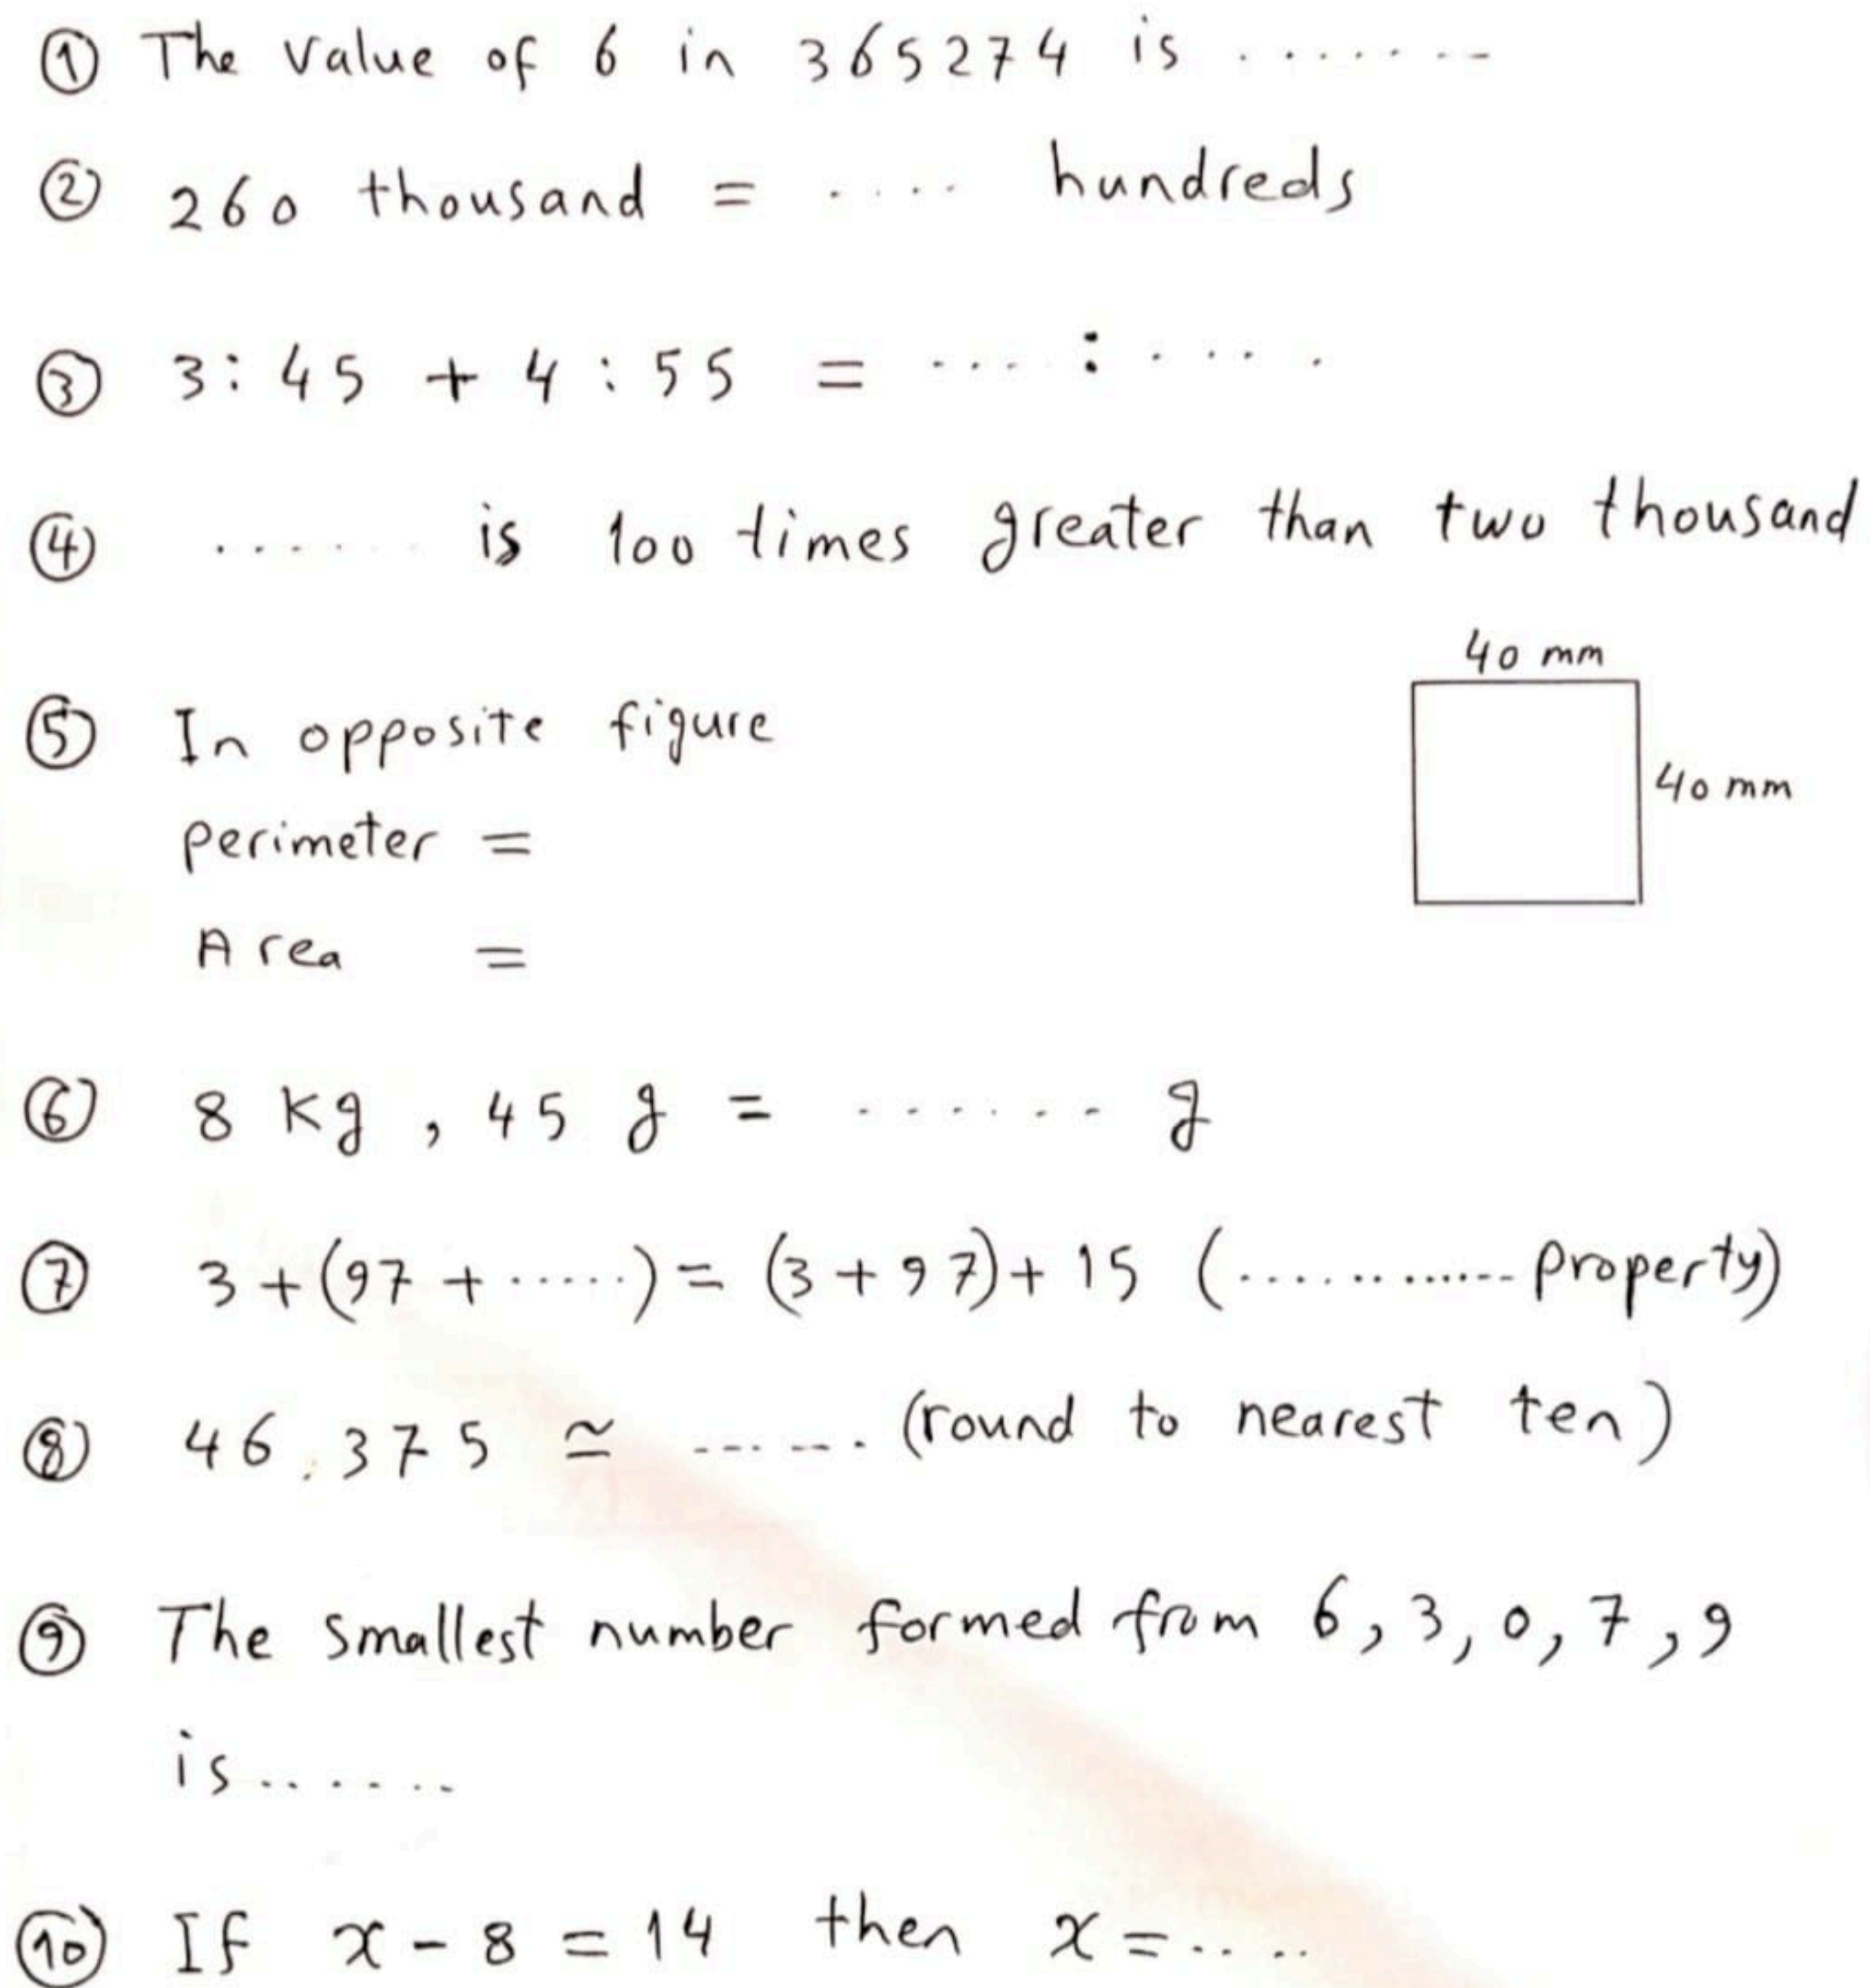 ① The value of 6 in 365274 is .......
② 260 thousand = .... hundreds
③ 3:45 + 4:55 = ... : ....
④ ...... is 100 times greater than two thousand
40 mm
⑤ In opposite figure
40 mm
perimeter =
Area =
⑥ 8 kg , 45 g = ....... g
⑦ 3 + (97 + .....) = (3 + 97) + 15 (............ property)
⑧ 46.375 ≃ ...... (round to nearest ten)
⑨ The smallest number formed from 6, 3, 0, 7, 9
is ......
⑩ If x - 8 = 14 then x = ....